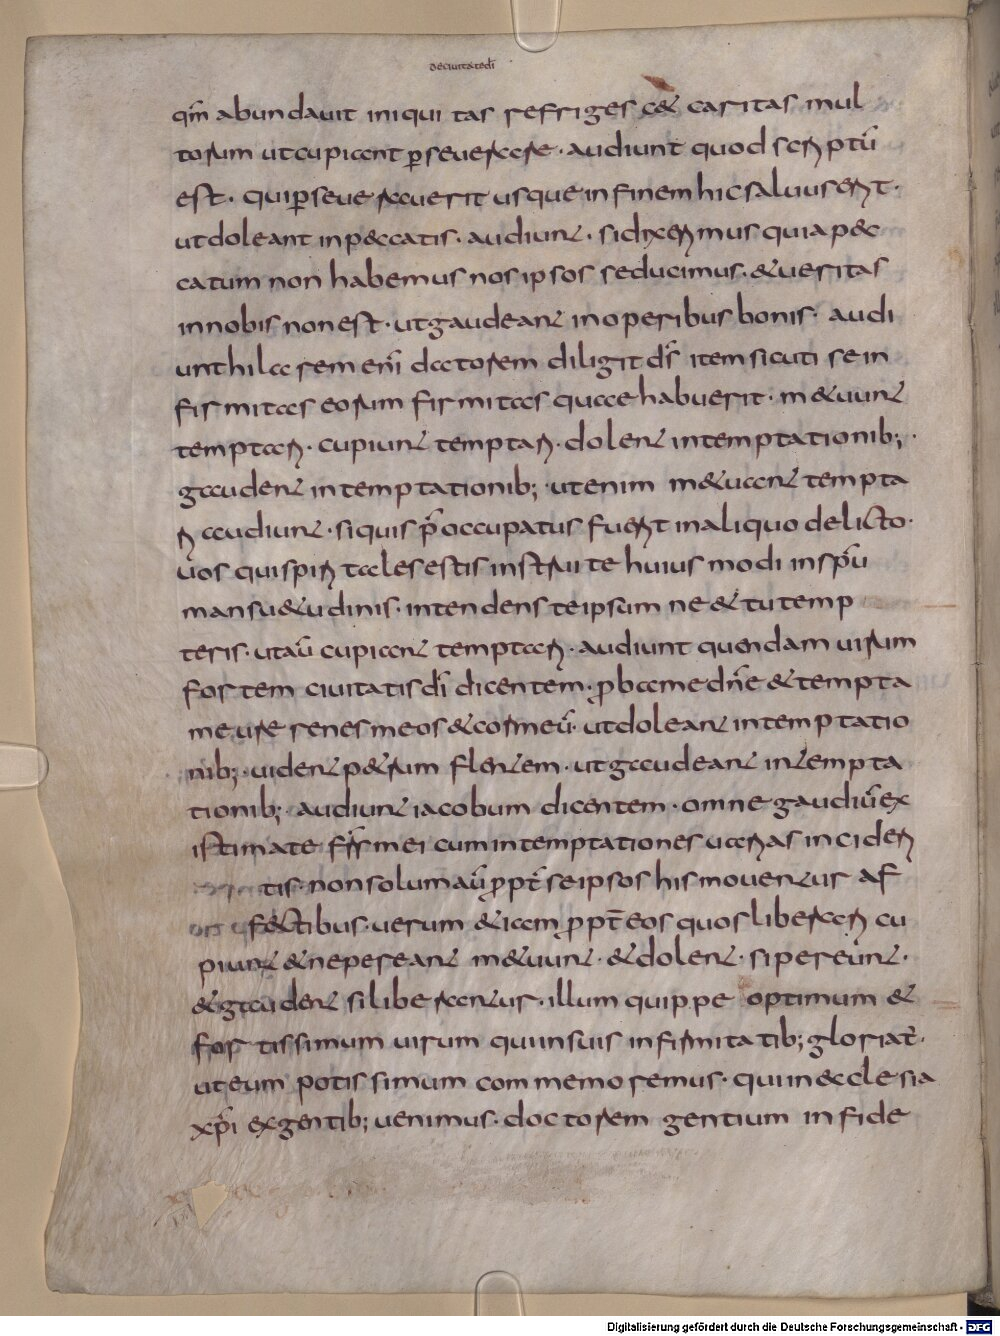 de ciuitate dī
qm̄ abundauit iniquitas refrigescet caritas mul
torum ut cupiant ꝑseuerare · audiunt quod scriptū
est · qui ꝑseuerauerit usque in finem hic saluus erit ·
ut doleant in peccatis · audiunt · si dixerimus quia pec
catum non habemus nos ipsos seducimus · & ueritas
in nobis non est · ut gaudeant in operibus bonis · audi
unt hilarem enī datorem diligit ds̄ item sicuti se in
firmitas eorum firmitas quae habuerit · metuunt
temptari · cupiunt temptari · dolent in temptationib; ·
gaudent in temptationib; · ut enim metuant tempta
ri audiunt · si quis p̄occupatus fuerit in aliquo delicto ·
uos qui spiritales estis instruite huius modi in spū
mansuetudinis · intendens te ipsum ne et tu temp
teris · ut aū cupiant temptari · audiunt quendam uirum
fortem ciuitatis dī dicentem · proba me dn̄e & tempta
me ure renes meos & cor meū · ut doleant in temptatio
nib; · uident petrum flentem · ut gaudeant in tempta
tionib; · audiunt iacobum dicentem · omne gaudiū ex
istimate fr̄s mei cum in temptationes uarias incideri
tis · non solum aū propt̄ se ipsos his mouentur af
fectibus · uerum etiam propt̄ eos quos liberari cu
piunt & ne pereant metuunt · & dolent · si pereunt ·
& gaudent si liberantur · illum quippe optimum &
fortissimum uirum qui in suis infirmitatib; gloriat̄ ·
ut eum potissimum commemoremus · qui in ecclesia
xp̄i ex gentib; uenimus · doctorem gentium in fide
Digitalisierung gefördert durch die Deutsche Forschungsgemeinschaft - DFG